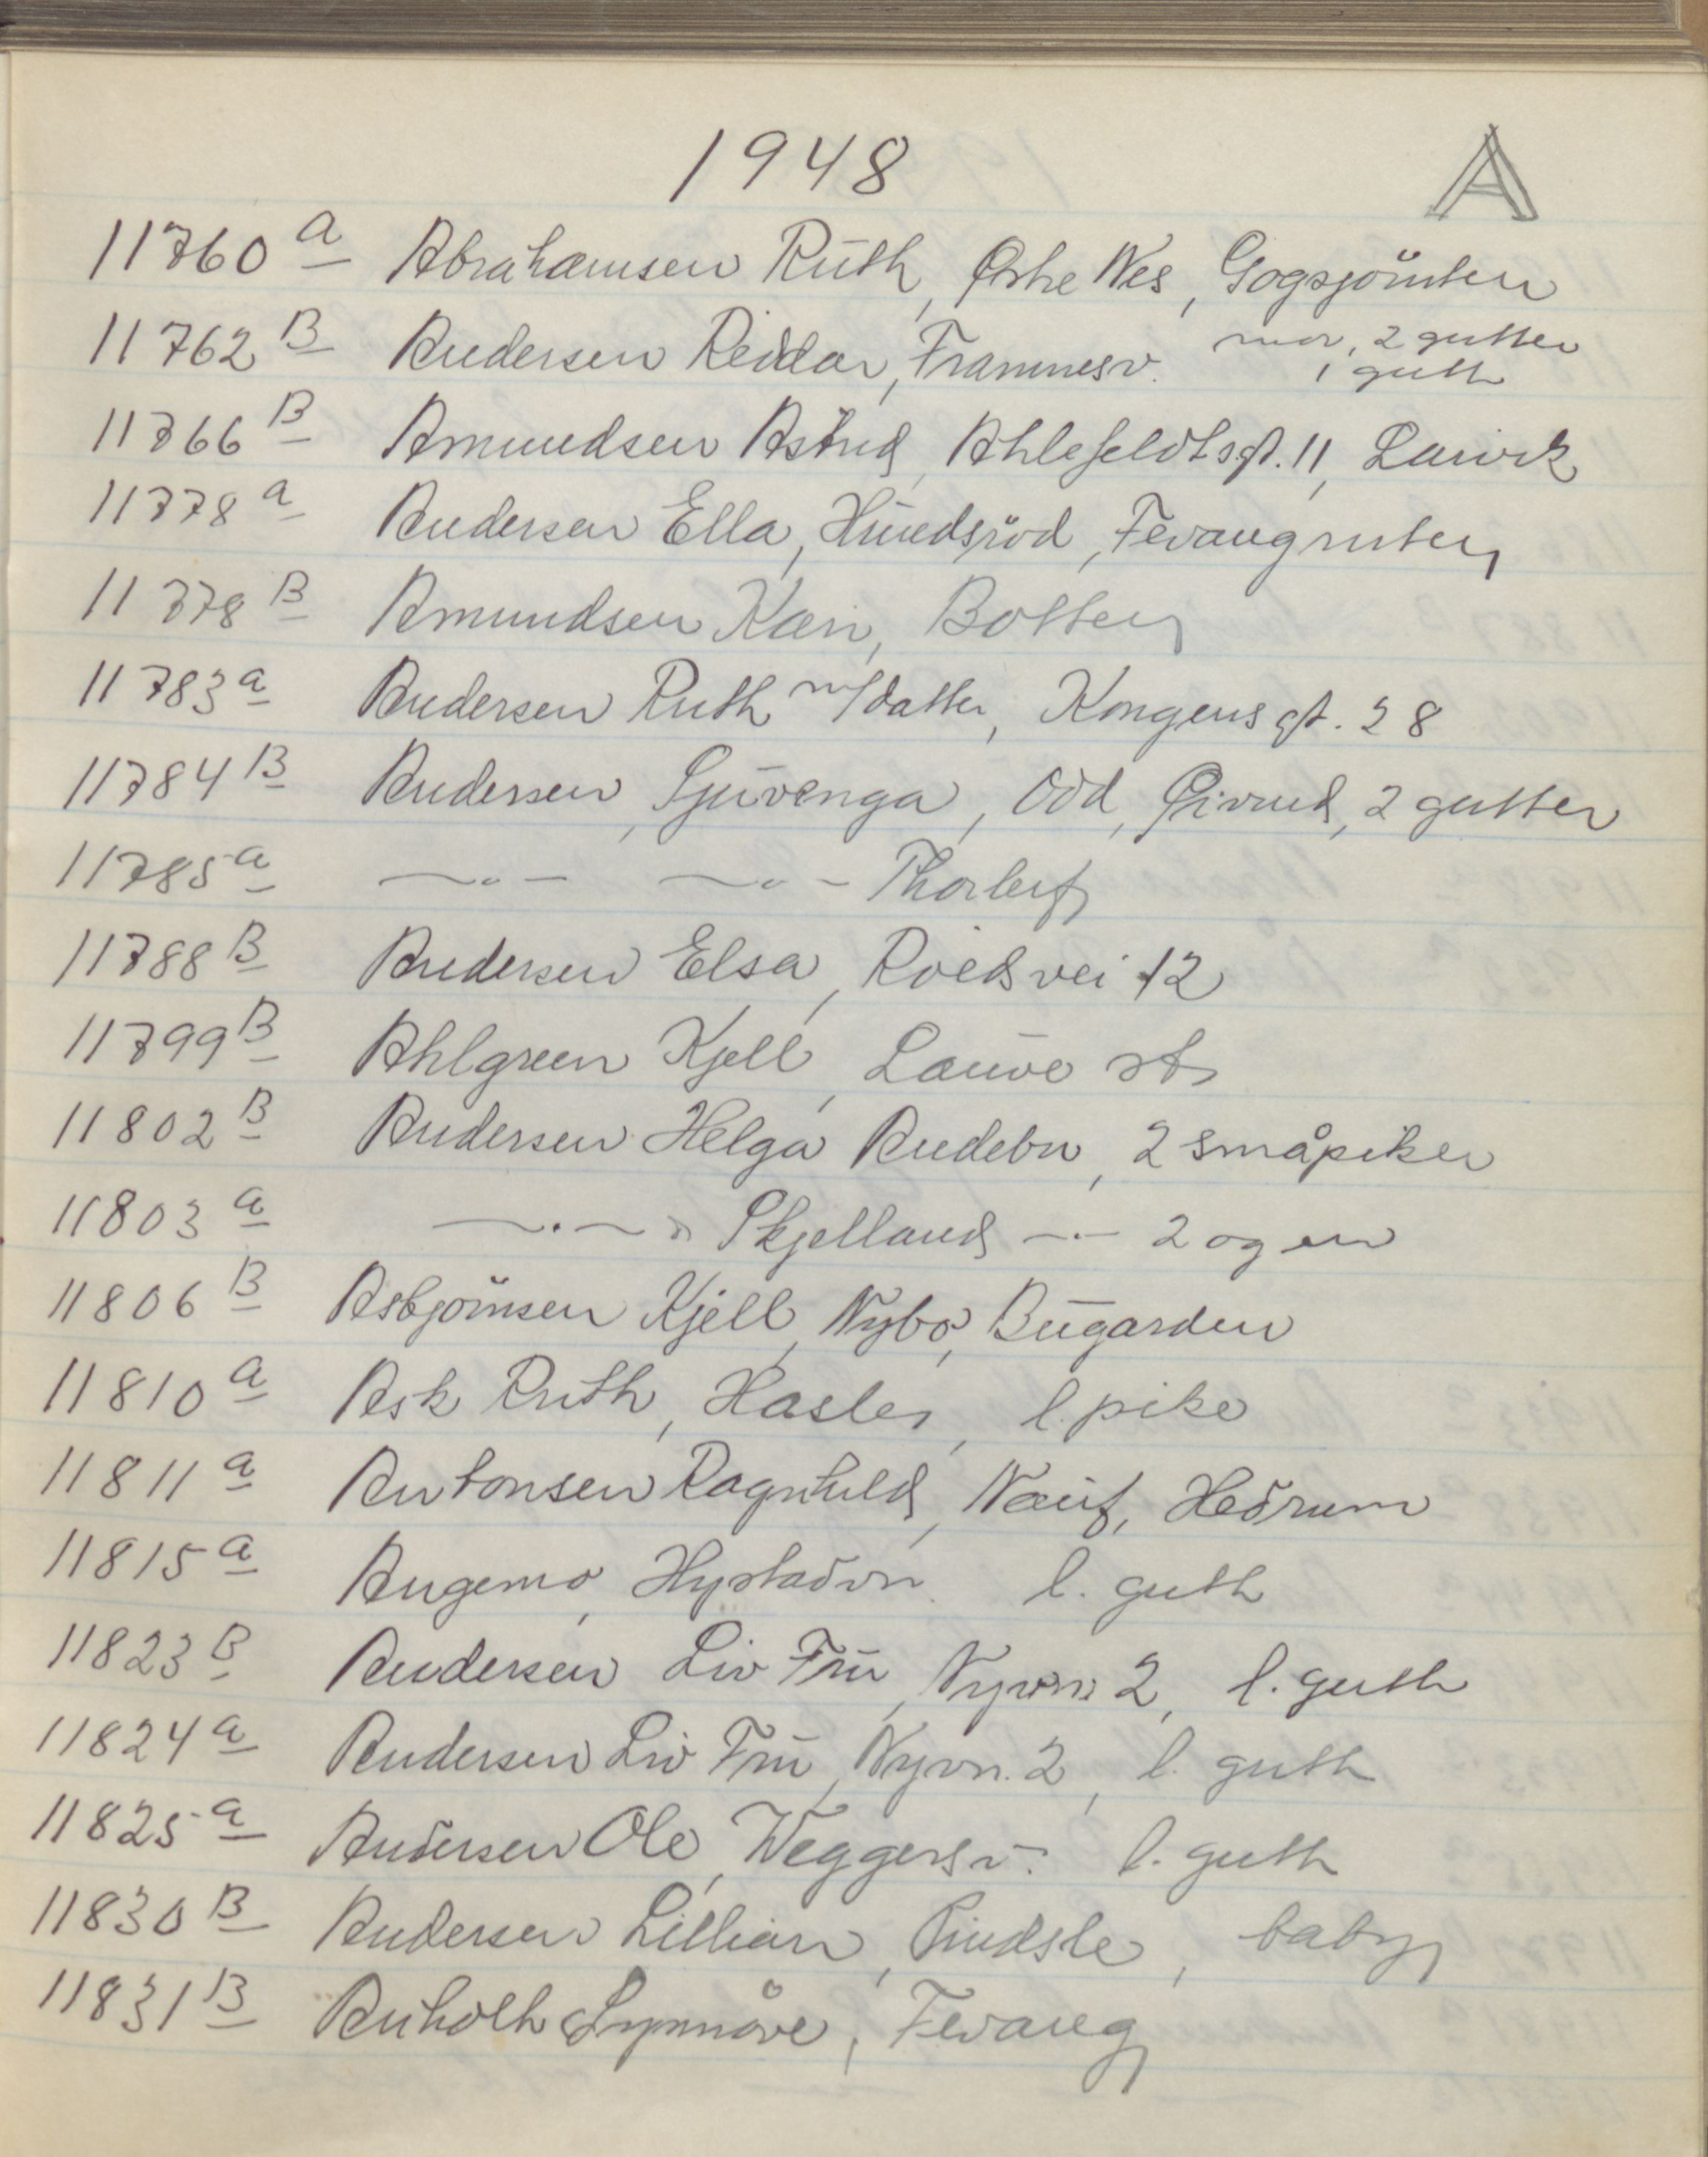 1948
A
11760 a Abrahamsen Ruth, Østre Nes, Gogsjöruten
11762 B Andersen Reidar, Framnesv. mor, 2 gutter
1 gutt
11766 B Amundsen Astrid, Ahlefeldtsgt. 11, Larvik
11778 a Andersen Ella, Hundsröd, Fevangruten
11778 B Amundsen Kari, Botten
11783 a Andersen Ruth m/datter, Kongensgt. 28
11784 B Andersen, Ljuvenga, Odd, Øivind, 2 gutter
11785 a —〃— —〃— Thorleif
11788 B Andersen Elsa, Roeds vei 12
11799 B Ahlgreen Kjell, Lauve st
11802 B Andersen Helga Andebu, 2 småpiker
11803 a —〃— Skjelland —〃— 2 og en
11806 B Asbjörnsen Kjell, Nybo, Bugarden
11810 a Ask Ruth, Hasle, l. pike
11811 a Antonsen Ragnhild, Nauf, Hedrum
11815 a Angemo, Hystadvn. l. gutt
11823 B Andersen Liv Fru, Nyvn. 2, l. gutt
11824 a Andersen Liv Fru, Nyvn. 2, l. gutt
11825 a Andersen Ole, Weggersv. l. gutt
11830 B Andersen Lillian, Pindsle, baby
11831 B Anholt Synnöve, Fevang